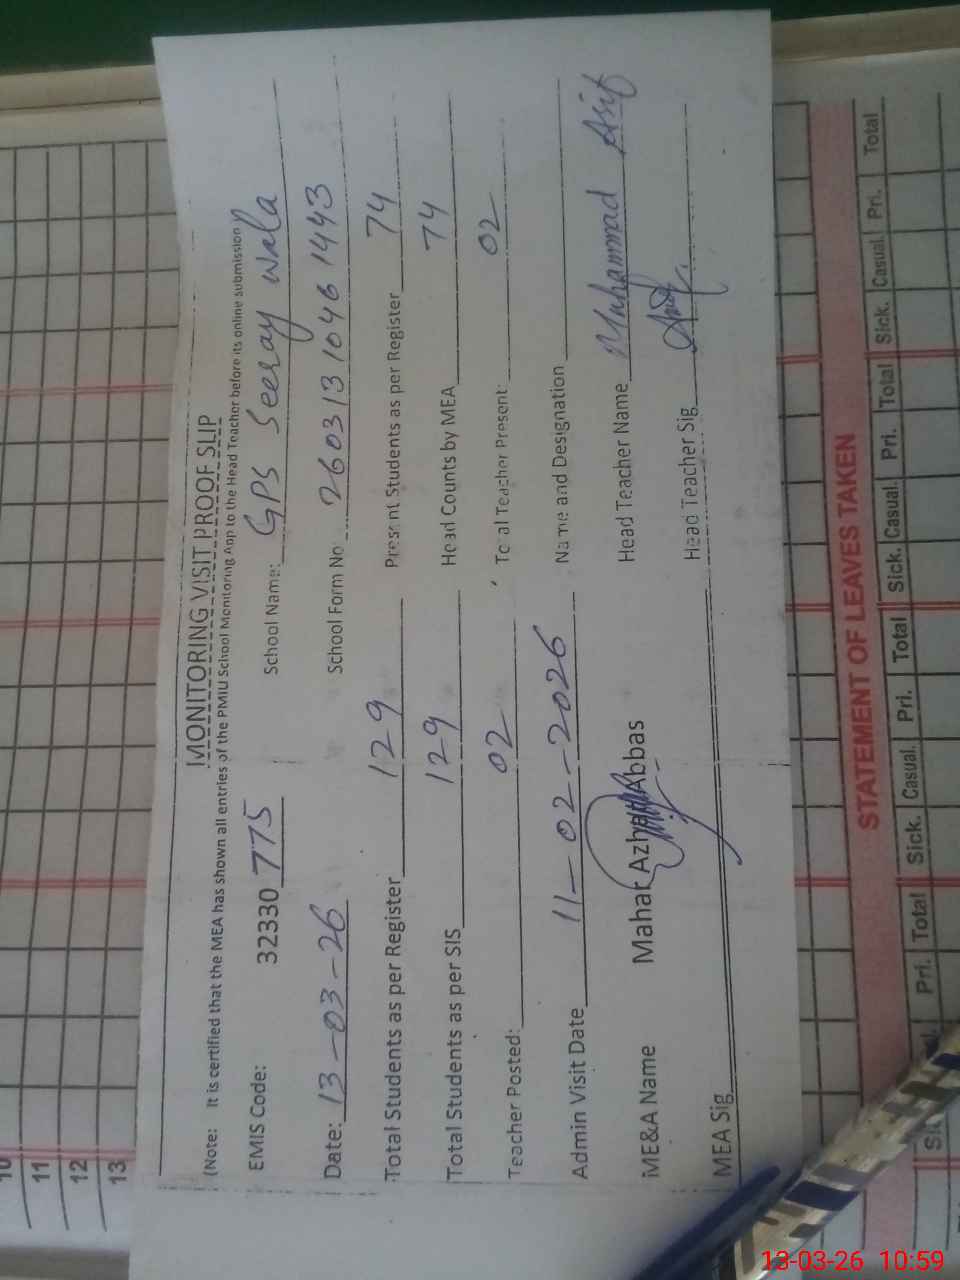 MONITORING VISIT PROOF SLIP
(Note: It is certified that the MEA has shown all entries of the PMIU School Monitoring App to the Head Teacher before its online submission.)
EMIS Code: 32330775 School Name: GPS Seeray Wala
Date: 13-03-26 School Form No. 260313 1046 1443
Total Students as per Register 129 Present Students as per Register 74
Total Students as per SIS 129 Head Counts by MEA 74
Teacher Posted: 02 Total Teacher Present: 02
Admin Visit Date 11-02-2026 Name and Designation
ME&A Name Mahar Azhar Abbas Head Teacher Name Muhammad Asif
MEA Sig Head Teacher Sig
10
11
12
13
STATEMENT OF LEAVES TAKEN
Pri. Total Sick. Casual. Pri. Total Sick. Casual. Pri. Total Sick. Casual. Pri. Total
13-03-26 10:59